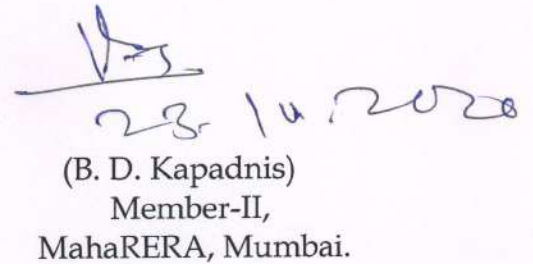 23.10.2020
(B. D. Kapadnis)
Member-II,
MahaRERA, Mumbai.